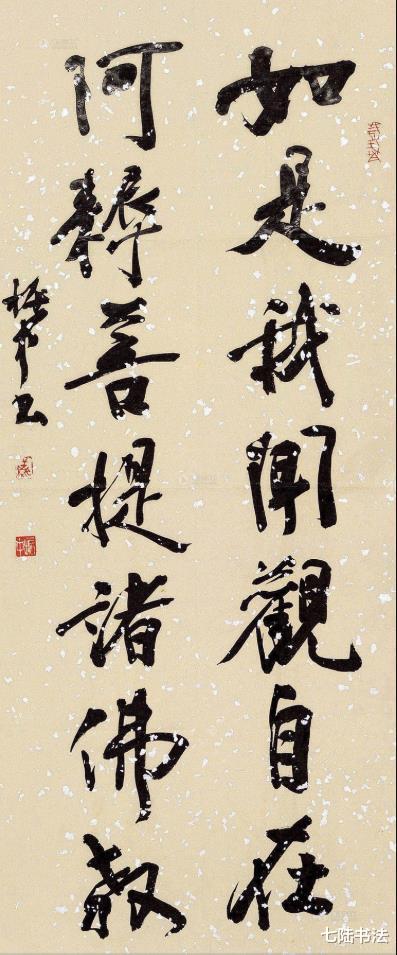 如是我聞觀自在
阿耨菩提諸佛教
书
七陆书法